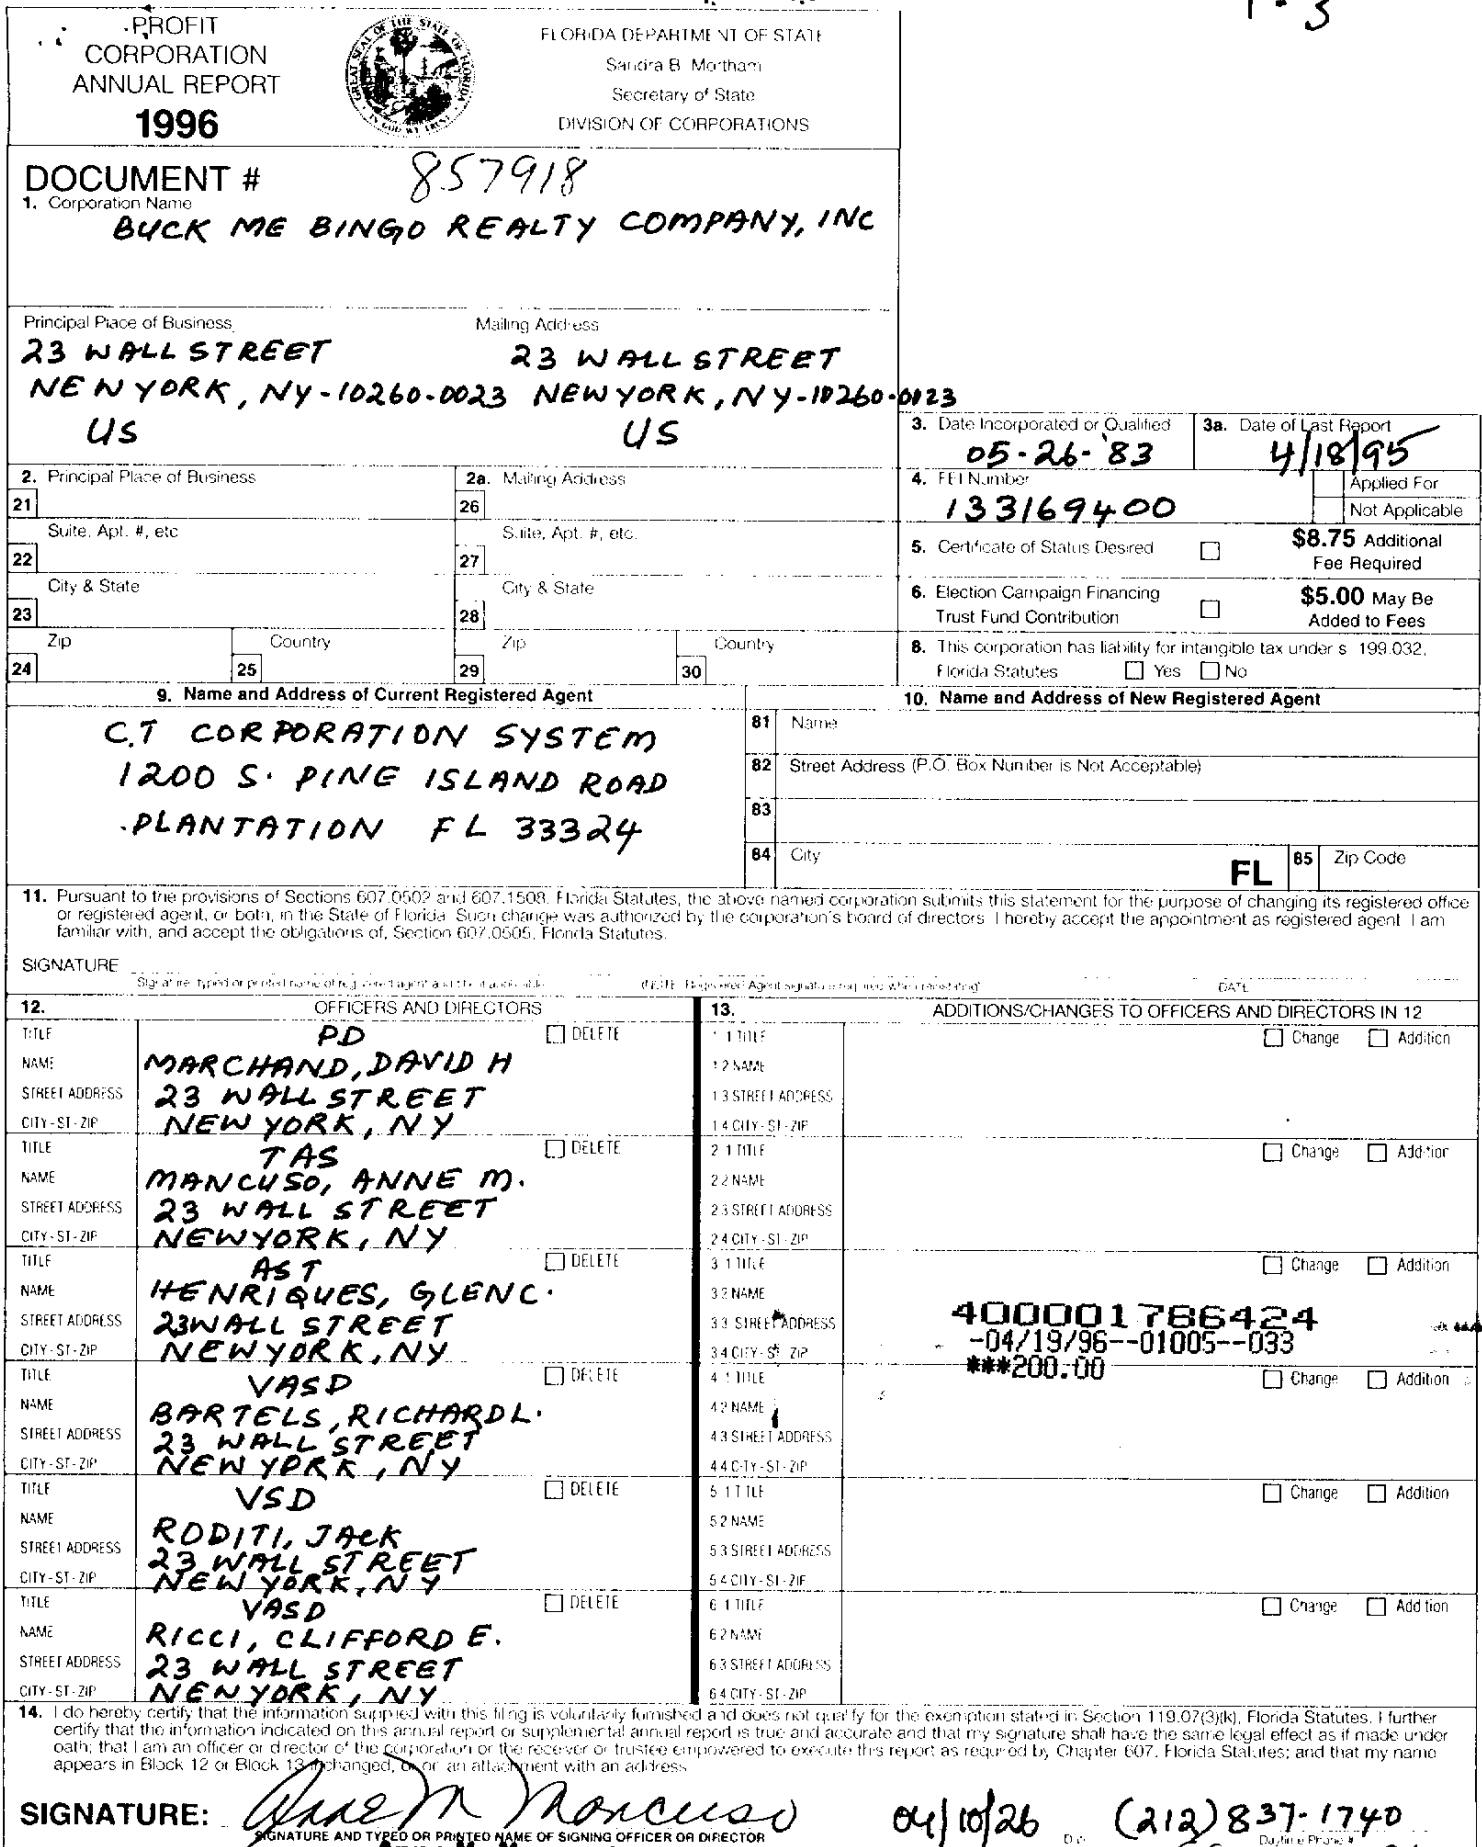 PROFIT
CORPORATION
ANNUAL REPORT
1996
GREAT SEAL OF THE STATE OF FLORIDA
IN GOD WE TRUST
FLORIDA DEPARTMENT OF STATE
Sandra B. Mortham
Secretary of State
DIVISION OF CORPORATIONS
DOCUMENT # 857918
1. Corporation Name
BUCK ME BINGO REALTY COMPANY, INC
Principal Place of Business Mailing Address
23 WALL STREET 23 WALL STREET
NEW YORK, NY-10260-0023 NEW YORK, NY-10260-0023
US US
3. Date Incorporated or Qualified 3a. Date of Last Report
05-26-'83 4/18/95
2. Principal Place of Business 2a. Mailing Address
4. FEI Number Applied For
21 26
133169400 Not Applicable
Suite, Apt. #, etc Suite, Apt. #, etc.
22 27
5. Certificate of Status Desired $8.75 Additional
Fee Required
City & State City & State
23 28
6. Election Campaign Financing $5.00 May Be
Trust Fund Contribution Added to Fees
Zip Country Zip Country
24 25 29 30
8. This corporation has liability for intangible tax under s 199.032,
Florida Statutes Yes No
9. Name and Address of Current Registered Agent
C.T CORPORATION SYSTEM
1200 S. PINE ISLAND ROAD
PLANTATION FL 33324
10. Name and Address of New Registered Agent
81 Name
82 Street Address (P.O. Box Number is Not Acceptable)
83
84 City FL 85 Zip Code
11. Pursuant to the provisions of Sections 607.0502 and 607.1508, Florida Statutes, the above named corporation submits this statement for the purpose of changing its registered office
or registered agent, or both, in the State of Florida Such change was authorized by the corporation's board of directors I hereby accept the appointment as registered agent I am
familiar with, and accept the obligations of, Section 607.0505, Florida Statutes.
SIGNATURE
DATE
12. OFFICERS AND DIRECTORS
TITLE PD DELETE
NAME MARCHAND, DAVID H
STREET ADDRESS 23 WALL STREET
CITY-ST-ZIP NEW YORK, NY
TITLE TAS DELETE
NAME MANCUSO, ANNE M.
STREET ADDRESS 23 WALL STREET
CITY-ST-ZIP NEWYORK, NY
TITLE AST DELETE
NAME HENRIQUES, GLENC.
STREET ADDRESS 23WALL STREET
CITY-ST-ZIP NEWYORK, NY
TITLE VASD DELETE
NAME BARTELS, RICHARDL.
STREET ADDRESS 23 WALL STREET
CITY-ST-ZIP NEW YORK, NY
TITLE VSD DELETE
NAME RODITI, JACK
STREET ADDRESS 23 WALL STREET
CITY-ST-ZIP NEW YORK, NY
TITLE VASD DELETE
NAME RICCI, CLIFFORD E.
STREET ADDRESS 23 WALL STREET
CITY-ST-ZIP NEW YORK, NY
13. ADDITIONS/CHANGES TO OFFICERS AND DIRECTORS IN 12
1 1 TITLE Change Addition
1 2 NAME
1 3 STREET ADDRESS
1 4 CITY-ST-ZIP
2 1 TITLE Change Addition
2 2 NAME
2 3 STREET ADDRESS
2 4 CITY-ST-ZIP
3 1 TITLE Change Addition
3 2 NAME
3 3 STREET ADDRESS
3 4 CITY-ST-ZIP
400001786424
-04/19/96--01005--033
***200.00
4 1 TITLE Change Addition
4 2 NAME
4 3 STREET ADDRESS
4 4 CITY-ST-ZIP
5 1 TITLE Change Addition
5 2 NAME
5 3 STREET ADDRESS
5 4 CITY-ST-ZIP
6 1 TITLE Change Addition
6 2 NAME
6 3 STREET ADDRESS
6 4 CITY-ST-ZIP
14. I do hereby certify that the information supplied with this filing is voluntarily furnished and does not qualify for the exemption stated in Section 119.07(3)(k), Florida Statutes. I further
certify that the information indicated on this annual report or supplemental annual report is true and accurate and that my signature shall have the same legal effect as if made under
oath; that I am an officer or director of the corporation or the receiver or trustee empowered to execute this report as required by Chapter 607, Florida Statutes; and that my name
appears in Block 12 or Block 13 if changed, or on an attachment with an address
SIGNATURE: Anne M Mancuso 04/10/26 (212)837-1740
SIGNATURE AND TYPED OR PRINTED NAME OF SIGNING OFFICER OR DIRECTOR Daytime Phone #